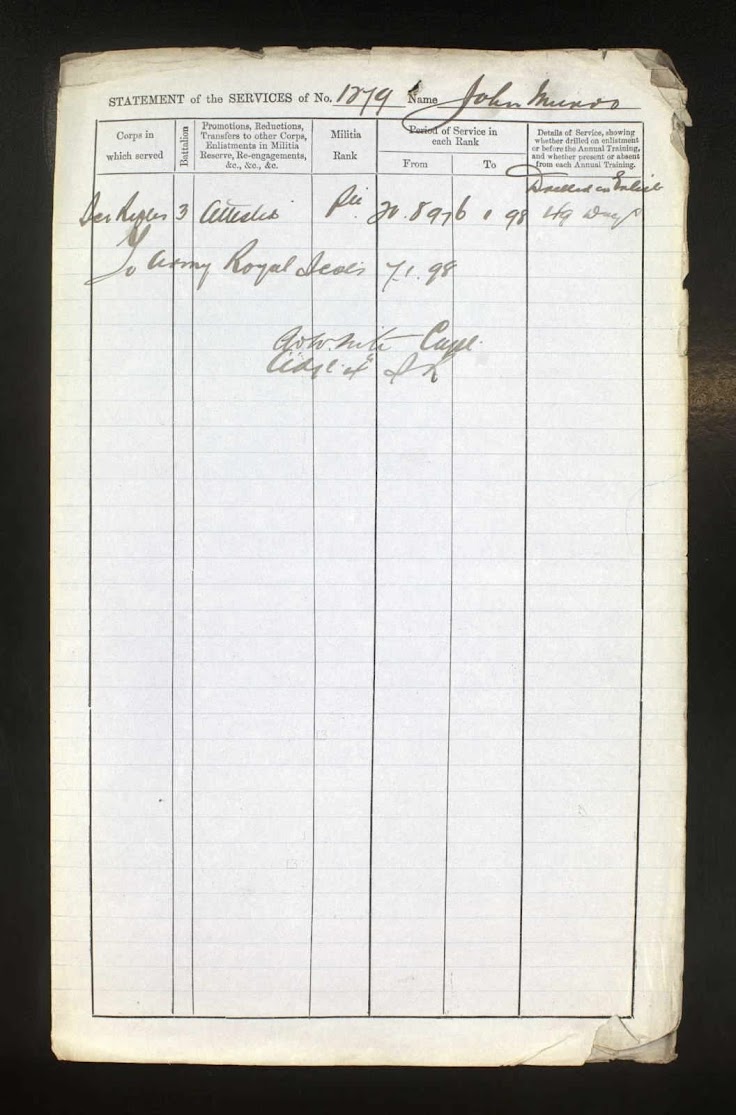 STATEMENT of the SERVICES of No. 1279 Name John Munro
Corps in
which served
Battalion
Promotions, Reductions,
Transfers to other Corps,
Enlistments in Militia
Reserve, Re-engagements,
&c., &c., &c.
Militia
Rank
Period of Service in
each Rank
From To
Details of Service, showing
whether drilled on enlistment
or before the Annual Training,
and whether present or absent
from each Annual Training.
Drilled on Enlist
3 Attested Pte 20.8 97 6 1 98 49 Days
To Army Royal Scots 7.1.98
Capt.